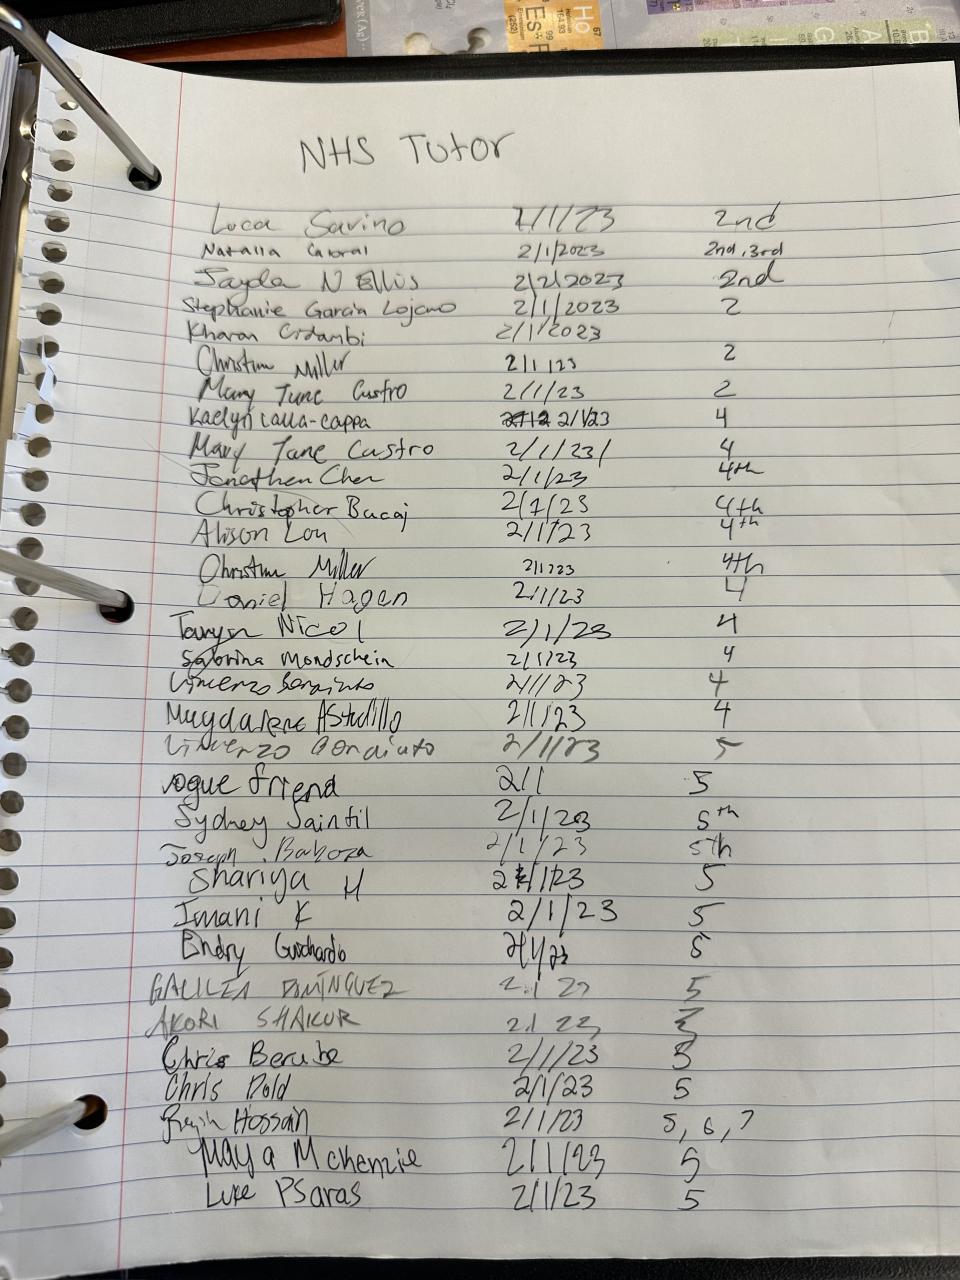 Ho
67
164.93
Es
99
(252)
G
A
B
NHS Tutor
Luca Savino 2/1/23 2nd
Natalia Cabral 2/1/2023 2nd,3rd
Jayda N Ellis 2/2/2023 2nd
Stephanie Garcia Lojano 2/1/2023 2
Kharan Cidambi 2/1/2023
Christian Miller 2/1/23 2
Mary Jane Castro 2/1/23 2
Kaelyn Calla-cappa 2/1/23 4
Mary Jane Castro 2/1/23/ 4
Jonathen Chen 2/1/23 4th
Christopher Bucaj 2/1/23 4th
Alison Lou 2/1/23 4th
Christian Miller 2/1/23 4th
Daniel Hagen 2/1/23 4
Tauryn Nicol 2/1/23 4
Sabrina Mondschein 2/1/23 4
Vincenzo 2/1/23 4
Magdalene Astudillo 2/1/23 4
Vincenzo 2/1/23 5
vogue friend 2/1 5
Sydney Saintil 2/1/23 5th
Joseph Barboza 2/1/23 5th
Shariya H 2/1/23 5
Imani K 2/1/23 5
Endry Guichardo 2/1/23 5
GALILEA DOMÍNGUEZ 2.1 23 5
AKORI SHAKUR 2.1 23 5
Chris Berube 2/1/23 5
Chris Dold 2/1/23 5
Hossain 2/1/23 5, 6, 7
Maya Mchenzie 2/1/23 5
Luke Psaras 2/1/23 5